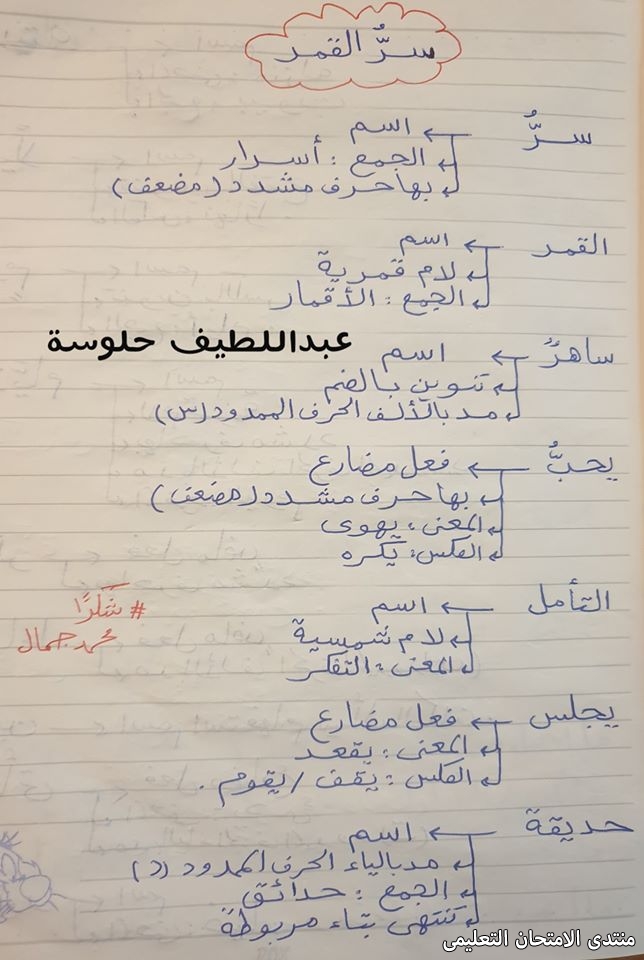 سرُّ القمر
سرُّ ← اسم
الجمع : أسرار
بها حرف مشدد (مضعف)
القمر ← اسم
لام قمرية
الجمع : الأقمار
عبداللطيف حلوسة
ساهرٌ ← اسم
تنوين بالضم
مد بالألف الحرف الممدود (س)
يحبُّ ← فعل مضارع
بها حرف مشدد (مضعف)
المعنى : يهوى
العكس : يكره
التأمل ← اسم
لام شمسية
المعنى : التفكر
# شكرًا
محمد جمال
يجلس ← فعل مضارع
المعنى : يقعد
العكس : يقف / يقوم .
حديقة ← اسم
مد بالياء الحرف الممدود (د)
الجمع : حدائق
تنتهى بتاء مربوطة
منتدى الامتحان التعليمى